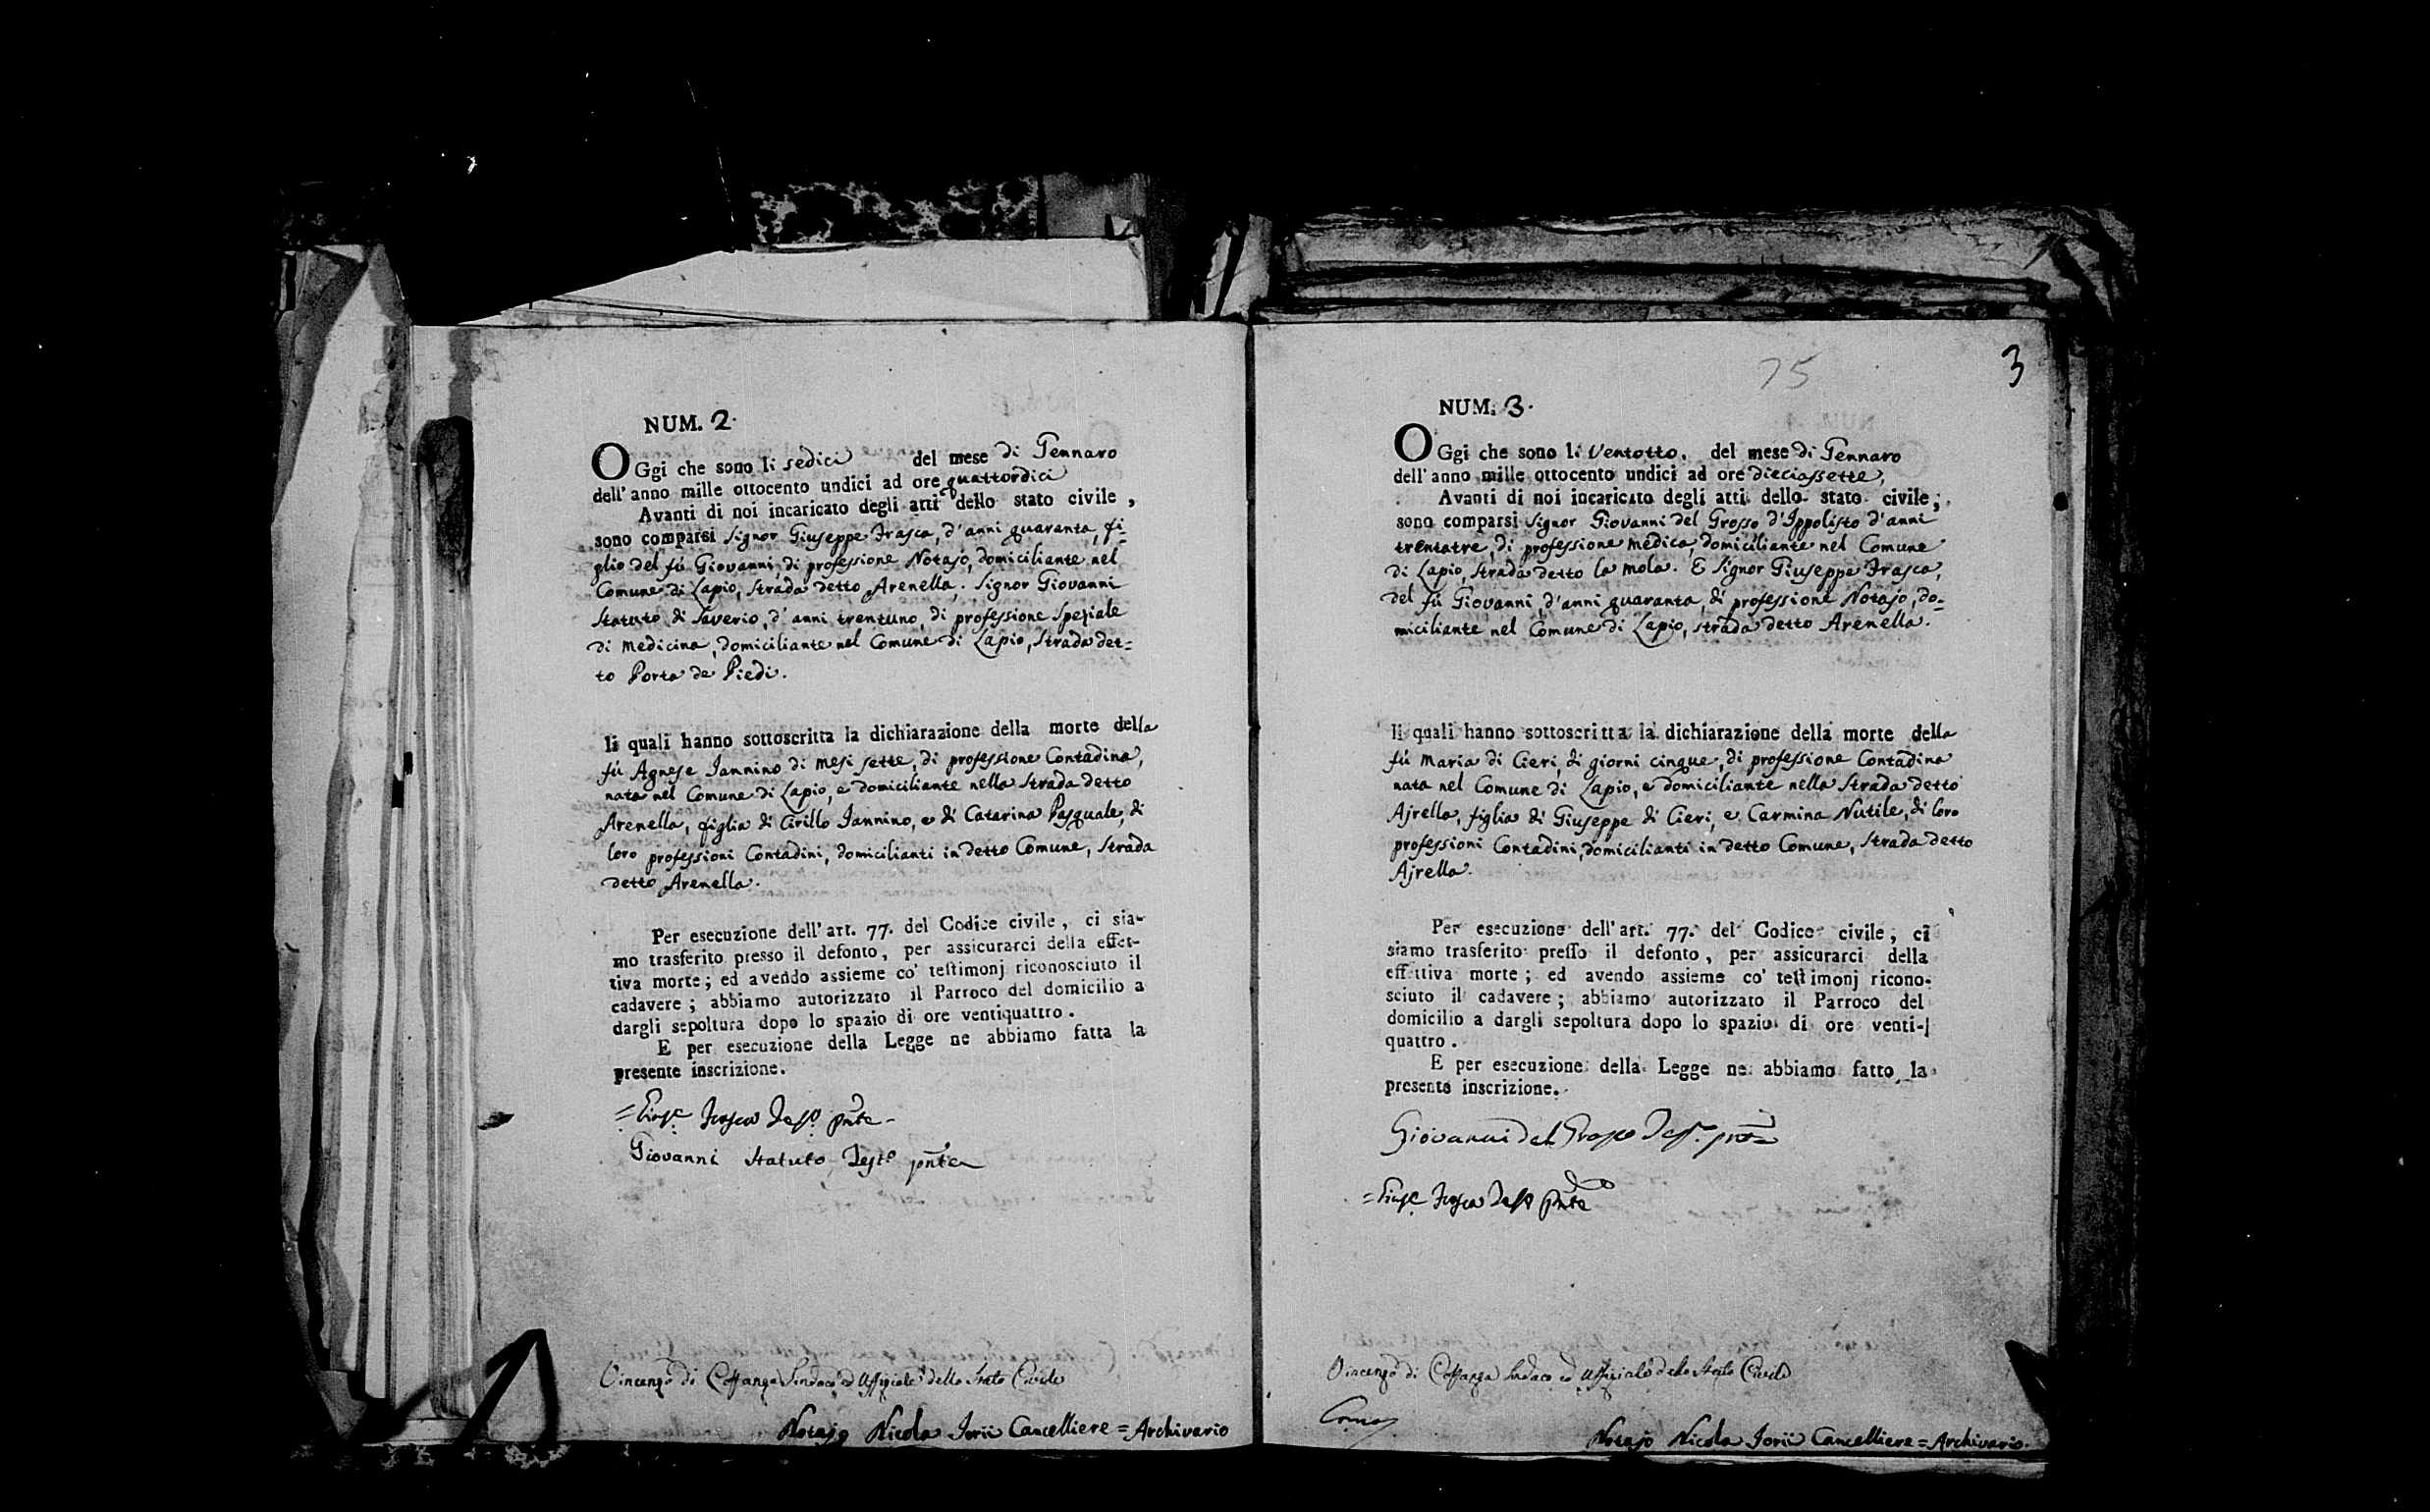 NUM. 2.
OGgi che sono li sedici del mese di Gennaro
dell'anno mille ottocento undici ad ore quattordici
Avanti di noi incaricato degli atti dello stato civile,
sono comparsi Signor Giuseppe Frasca, d'anni quaranta, fi-
glio del fù Giovanni, di professione Notajo, domiciliante nel
Comune di Lapio, strada detto Arenella. Signor Giovanni
Statuto di Saverio, d'anni trentuno, di professione Speziale
di Medicina, domiciliante nel Comune di Lapio, Strada det-
to Porta de Piedi.
li quali hanno sottoscritta la dichiarazione della morte della
fù Agnese Iannino di mesi sette, di professione Contadina,
nata nel Comune di Lapio, e domiciliante nella Strada detto
Arenella, figlia di Cirillo Iannino, e di Catarina Pasquale, di
loro professioni Contadini, domicilianti in detto Comune, Strada
detto Arenella.
Per esecuzione dell'art. 77. del Codice civile, ci sia-
mo trasferito presso il defonto, per assicurarci della effet-
tiva morte; ed avendo assieme co' testimonj riconosciuto il
cadavere; abbiamo autorizzato il Parroco del domicilio a
dargli sepoltura dopo lo spazio di ore ventiquattro.
E per esecuzione della Legge ne abbiamo fatta la
presente inscrizione.
=Gius.e Frasca Test.o pnte-
Giovanni Statuto Test.o pnte
Vincenzo di Sindaco ed Uffiziale dello Stato Civile
Notajo Nicola Iorii Cancelliere = Archivario
75
3
NUM. 3.
OGgi che sono li Ventotto, del mese di Gennaro
dell'anno mille ottocento undici ad ore dieciassette,
Avanti di noi incaricato degli atti dello stato civile,
sono comparsi Signor Giovanni del Grosso d'Ippolisto d'anni
trentatre, di professione medico, domiciliante nel Comune
di Lapio, strada detto la mola. E Signor Giuseppe Frasca,
del fù Giovanni, d'anni quaranta, di professione Notajo, do-
miciliante nel Comune di Lapio, strada detto Arenella.
li quali hanno sottoscritta la dichiarazione della morte della
fù Maria di Cieri, di giorni cinque, di professione Contadina
nata nel Comune di Lapio, e domiciliante nella Strada detto
Ajrella, figlia di Giuseppe di Cieri, e Carmina Nutile, di loro
professioni Contadini, domicilianti in detto Comune, Strada detto
Ajrella.
Per esecuzione dell'art. 77. del Codice civile, ci
siamo trasferito presso il defonto, per assicurarci della
effettiva morte; ed avendo assieme co' testimonj ricono-
sciuto il cadavere; abbiamo autorizzato il Parroco del
domicilio a dargli sepoltura dopo lo spazio di ore venti-
quattro.
E per esecuzione della Legge ne abbiamo fatto la
presente inscrizione.
Giovanni del Grosso Test. pnte
=Gius.e Frasca Test.o pnte
Vincenzo di Sindaco ed Uffiziale dello Stato Civile
Notajo Nicola Iorii Cancelliere = Archivario.